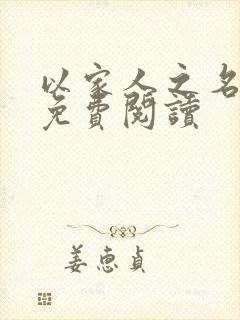 以家人之名
免費閱讀
姜惠貞